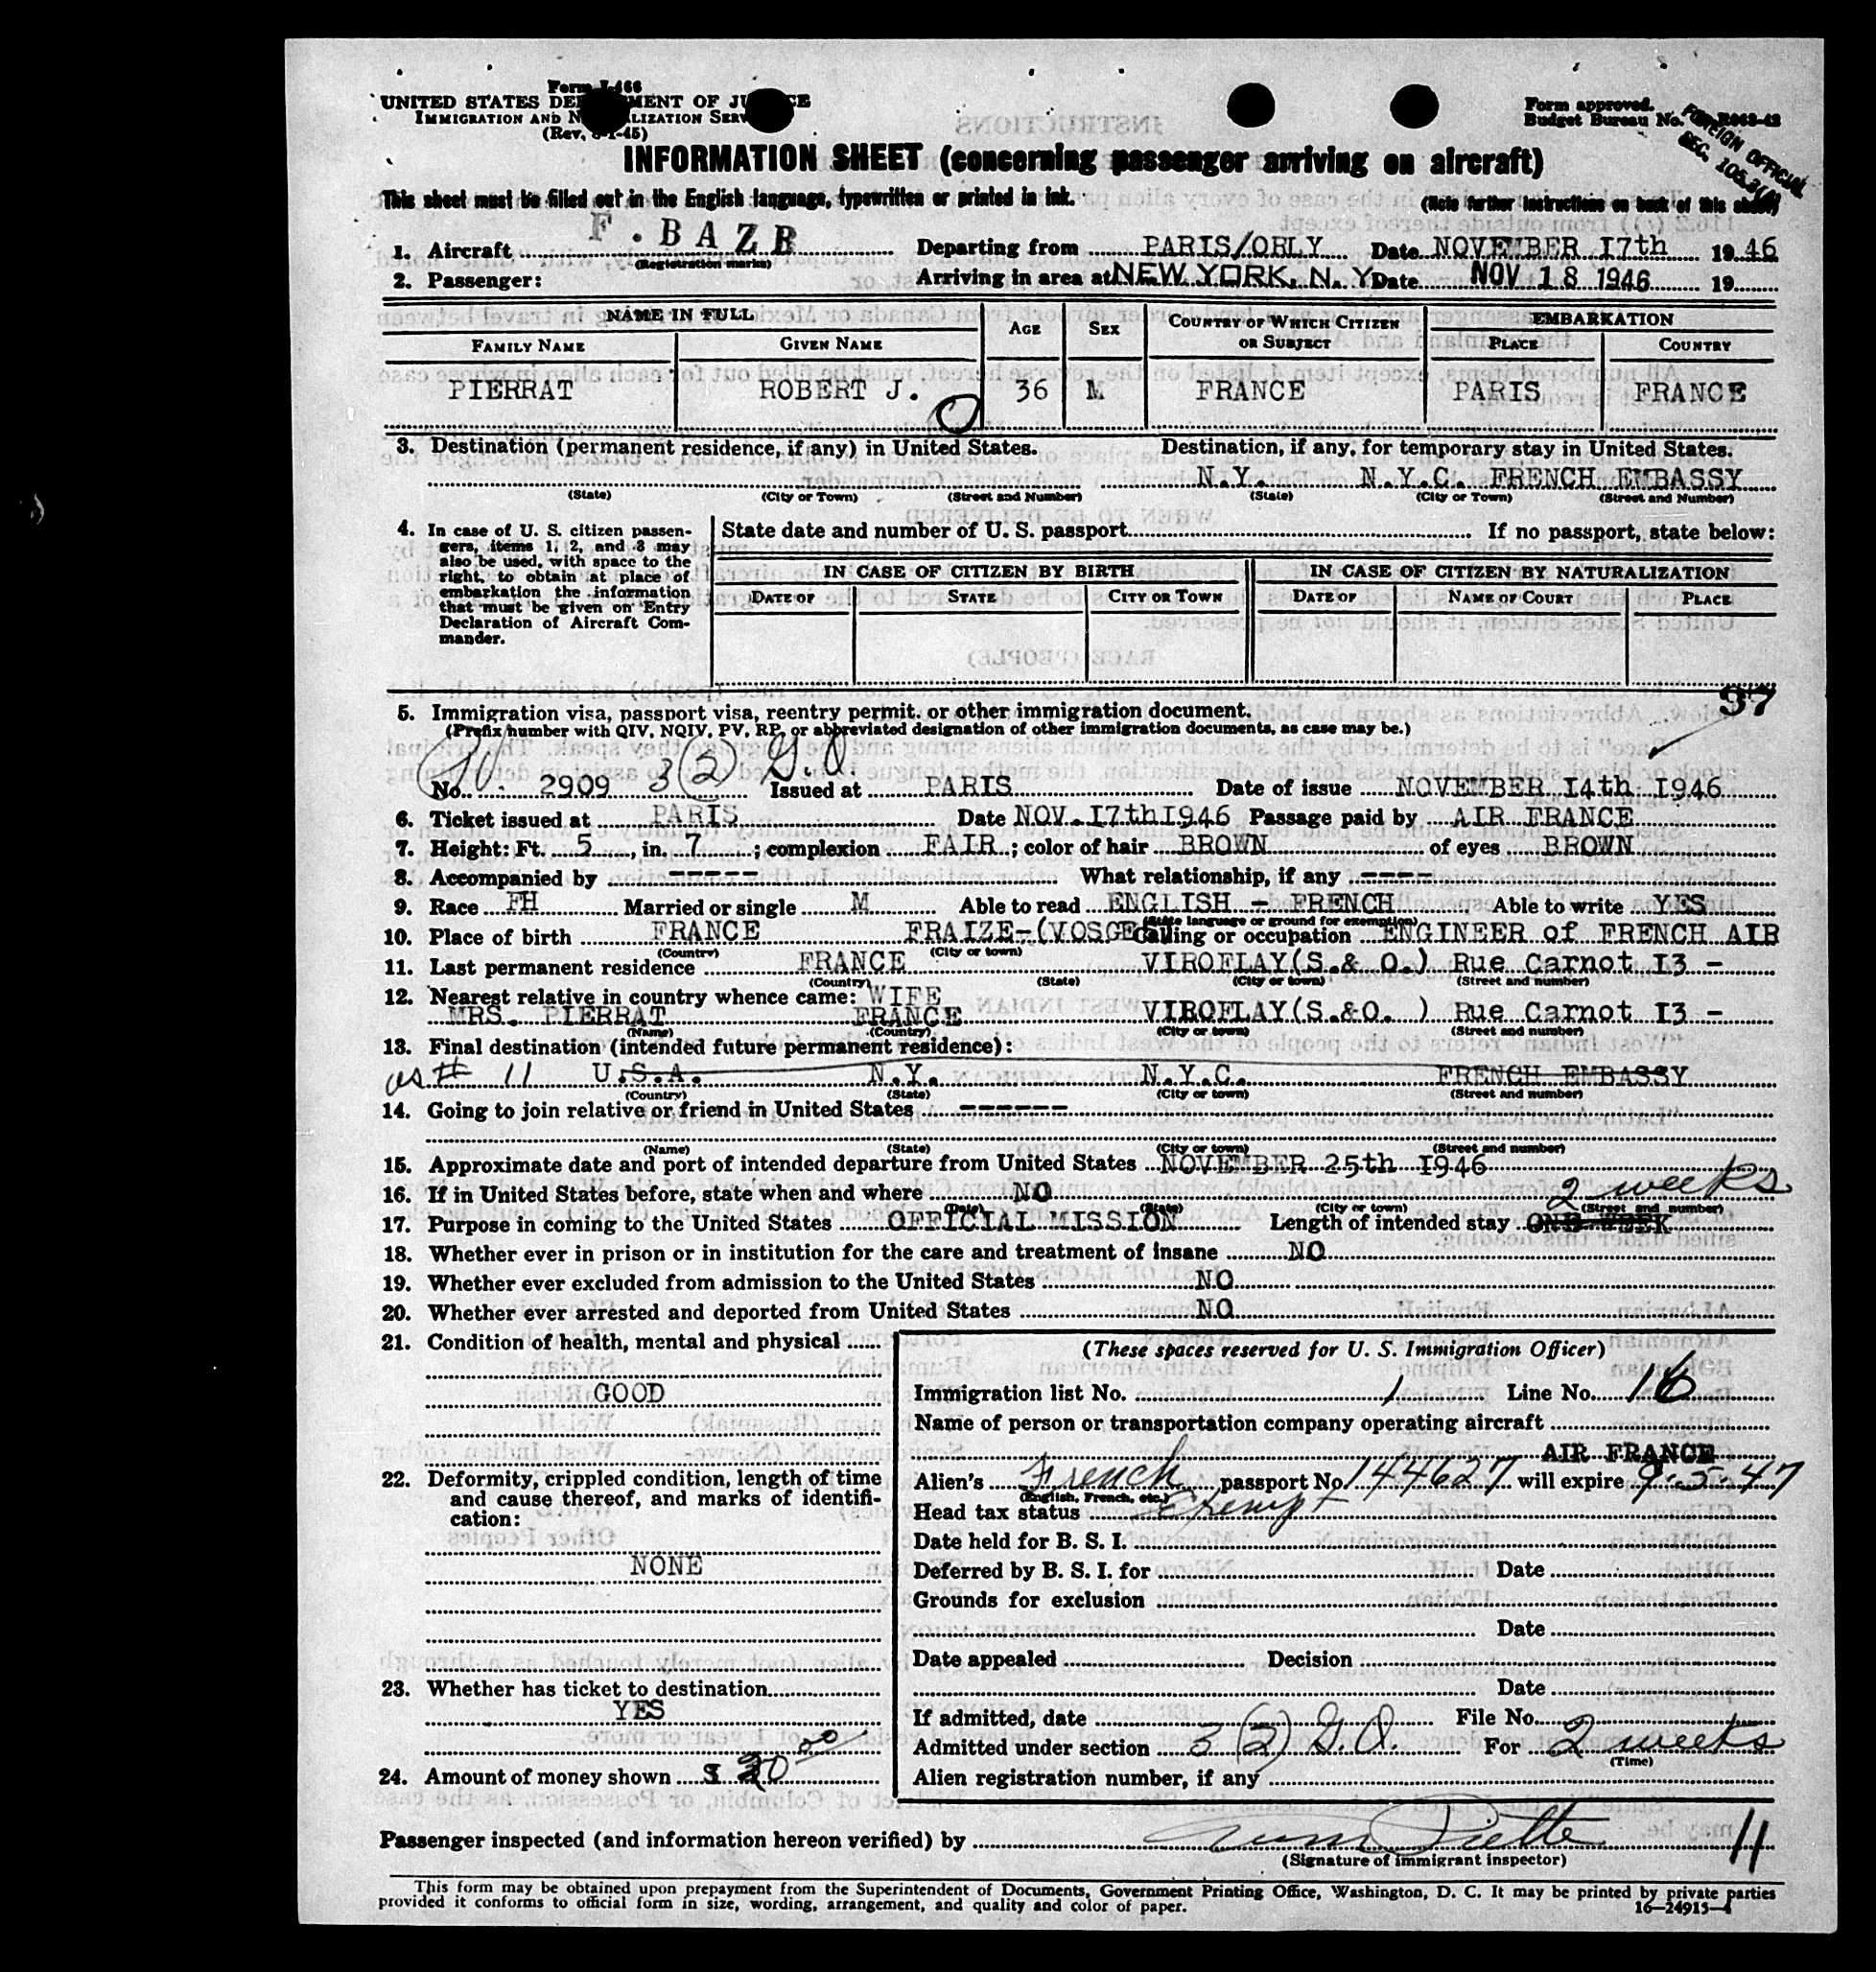 Form I-466
UNITED STATES DEPARTMENT OF JUSTICE
IMMIGRATION AND NATURALIZATION SERVICE
(Rev. 8-1-45)
Form approved.
Budget Bureau No.
FOREIGN OFFICIAL
SEC. 105.3
INFORMATION SHEET (concerning passenger arriving on aircraft)
This sheet must be filled out in the English language, typewritten or printed in ink. (Note further instructions on back of this sheet)
1. Aircraft F. BAZB Departing from PARIS/ORLY Date NOVEMBER I7th 19 46
(Registration marks)
2. Passenger: Arriving in area at NEW YORK, N. Y. Date NOV 18 1946 19
NAME IN FULL AGE SEX COUNTRY OF WHICH CITIZEN OR SUBJECT EMBARKATION
FAMILY NAME GIVEN NAME PLACE COUNTRY
PIERRAT ROBERT J. 36 M FRANCE PARIS FRANCE
3. Destination (permanent residence, if any) in United States. Destination, if any, for temporary stay in United States.
N.Y. N.Y.C. FRENCH EMBASSY
(State) (City or Town) (Street and Number) (State) (City or Town) (Street and Number)
4. In case of U. S. citizen passen-
gers, items 1, 2, and 3 may
also be used, with space to the
right, to obtain at place of
embarkation the information
that must be given on Entry
Declaration of Aircraft Com-
mander.
State date and number of U. S. passport If no passport, state below:
IN CASE OF CITIZEN BY BIRTH IN CASE OF CITIZEN BY NATURALIZATION
DATE OF STATE CITY OR TOWN DATE OF NAME OF COURT PLACE
37
5. Immigration visa, passport visa, reentry permit, or other immigration document.
(Prefix number with QIV, NQIV, PV, RP, or abbreviated designation of other immigration documents, as case may be.)
No. 2909 3(2) G.O. Issued at PARIS Date of issue NOVEMBER I4th I946
6. Ticket issued at PARIS Date NOV.I7thI946 Passage paid by AIR FRANCE
7. Height: Ft. 5, in. 7; complexion FAIR; color of hair BROWN of eyes BROWN
8. Accompanied by ----- What relationship, if any ----
9. Race FH Married or single M Able to read ENGLISH - FRENCH Able to write YES
(State language or ground for exemption)
10. Place of birth FRANCE FRAIZE-(VOSGES Calling or occupation ENGINEER of FRENCH AIR
(Country) (City or town)
11. Last permanent residence FRANCE VIROFLAY(S.& O.) Rue Carnot I3 -
(Country) (State) (City or town) (Street and number)
12. Nearest relative in country whence came: WIFE
MRS. PIERRAT FRANCE VIROFLAY(S.&O. ) Rue Carnot I3 -
(Name) (Country) (City or town) (Street and number)
13. Final destination (intended future permanent residence):
as # 11 U.S.A. N.Y. N.Y.C. FRENCH EMBASSY
(Country) (State) (City or town) (Street and number)
14. Going to join relative or friend in United States ------
(Name) (State) (City or town) (Street and number)
15. Approximate date and port of intended departure from United States NOVEMBER 25th I946
16. If in United States before, state when and where NO
(Date) (State) (City or town) (Street and number)
2 weeks
17. Purpose in coming to the United States OFFICIAL MISSION Length of intended stay ONE WEEK
18. Whether ever in prison or in institution for the care and treatment of insane NO
19. Whether ever excluded from admission to the United States NO
20. Whether ever arrested and deported from United States NO
21. Condition of health, mental and physical
GOOD
22. Deformity, crippled condition, length of time
and cause thereof, and marks of identifi-
cation:
NONE
23. Whether has ticket to destination
YES
24. Amount of money shown $ 20 00
(These spaces reserved for U. S. Immigration Officer)
Immigration list No. 1 Line No. 16
Name of person or transportation company operating aircraft
AIR FRANCE
Alien's French passport No. 144627 will expire 9-5-47
(English, French, etc.)
Head tax status Exempt
Date held for B. S. I.
Deferred by B. S. I. for Date
Grounds for exclusion
Date
Date appealed Decision
Date
If admitted, date File No.
Admitted under section 3(2) G.O. For 2 weeks
(Time)
Alien registration number, if any
Passenger inspected (and information hereon verified) by
11
(Signature of immigrant inspector)
This form may be obtained upon prepayment from the Superintendent of Documents, Government Printing Office, Washington, D. C. It may be printed by private parties
provided it conforms to official form in size, wording, arrangement, and quality and color of paper. 16—24915-1